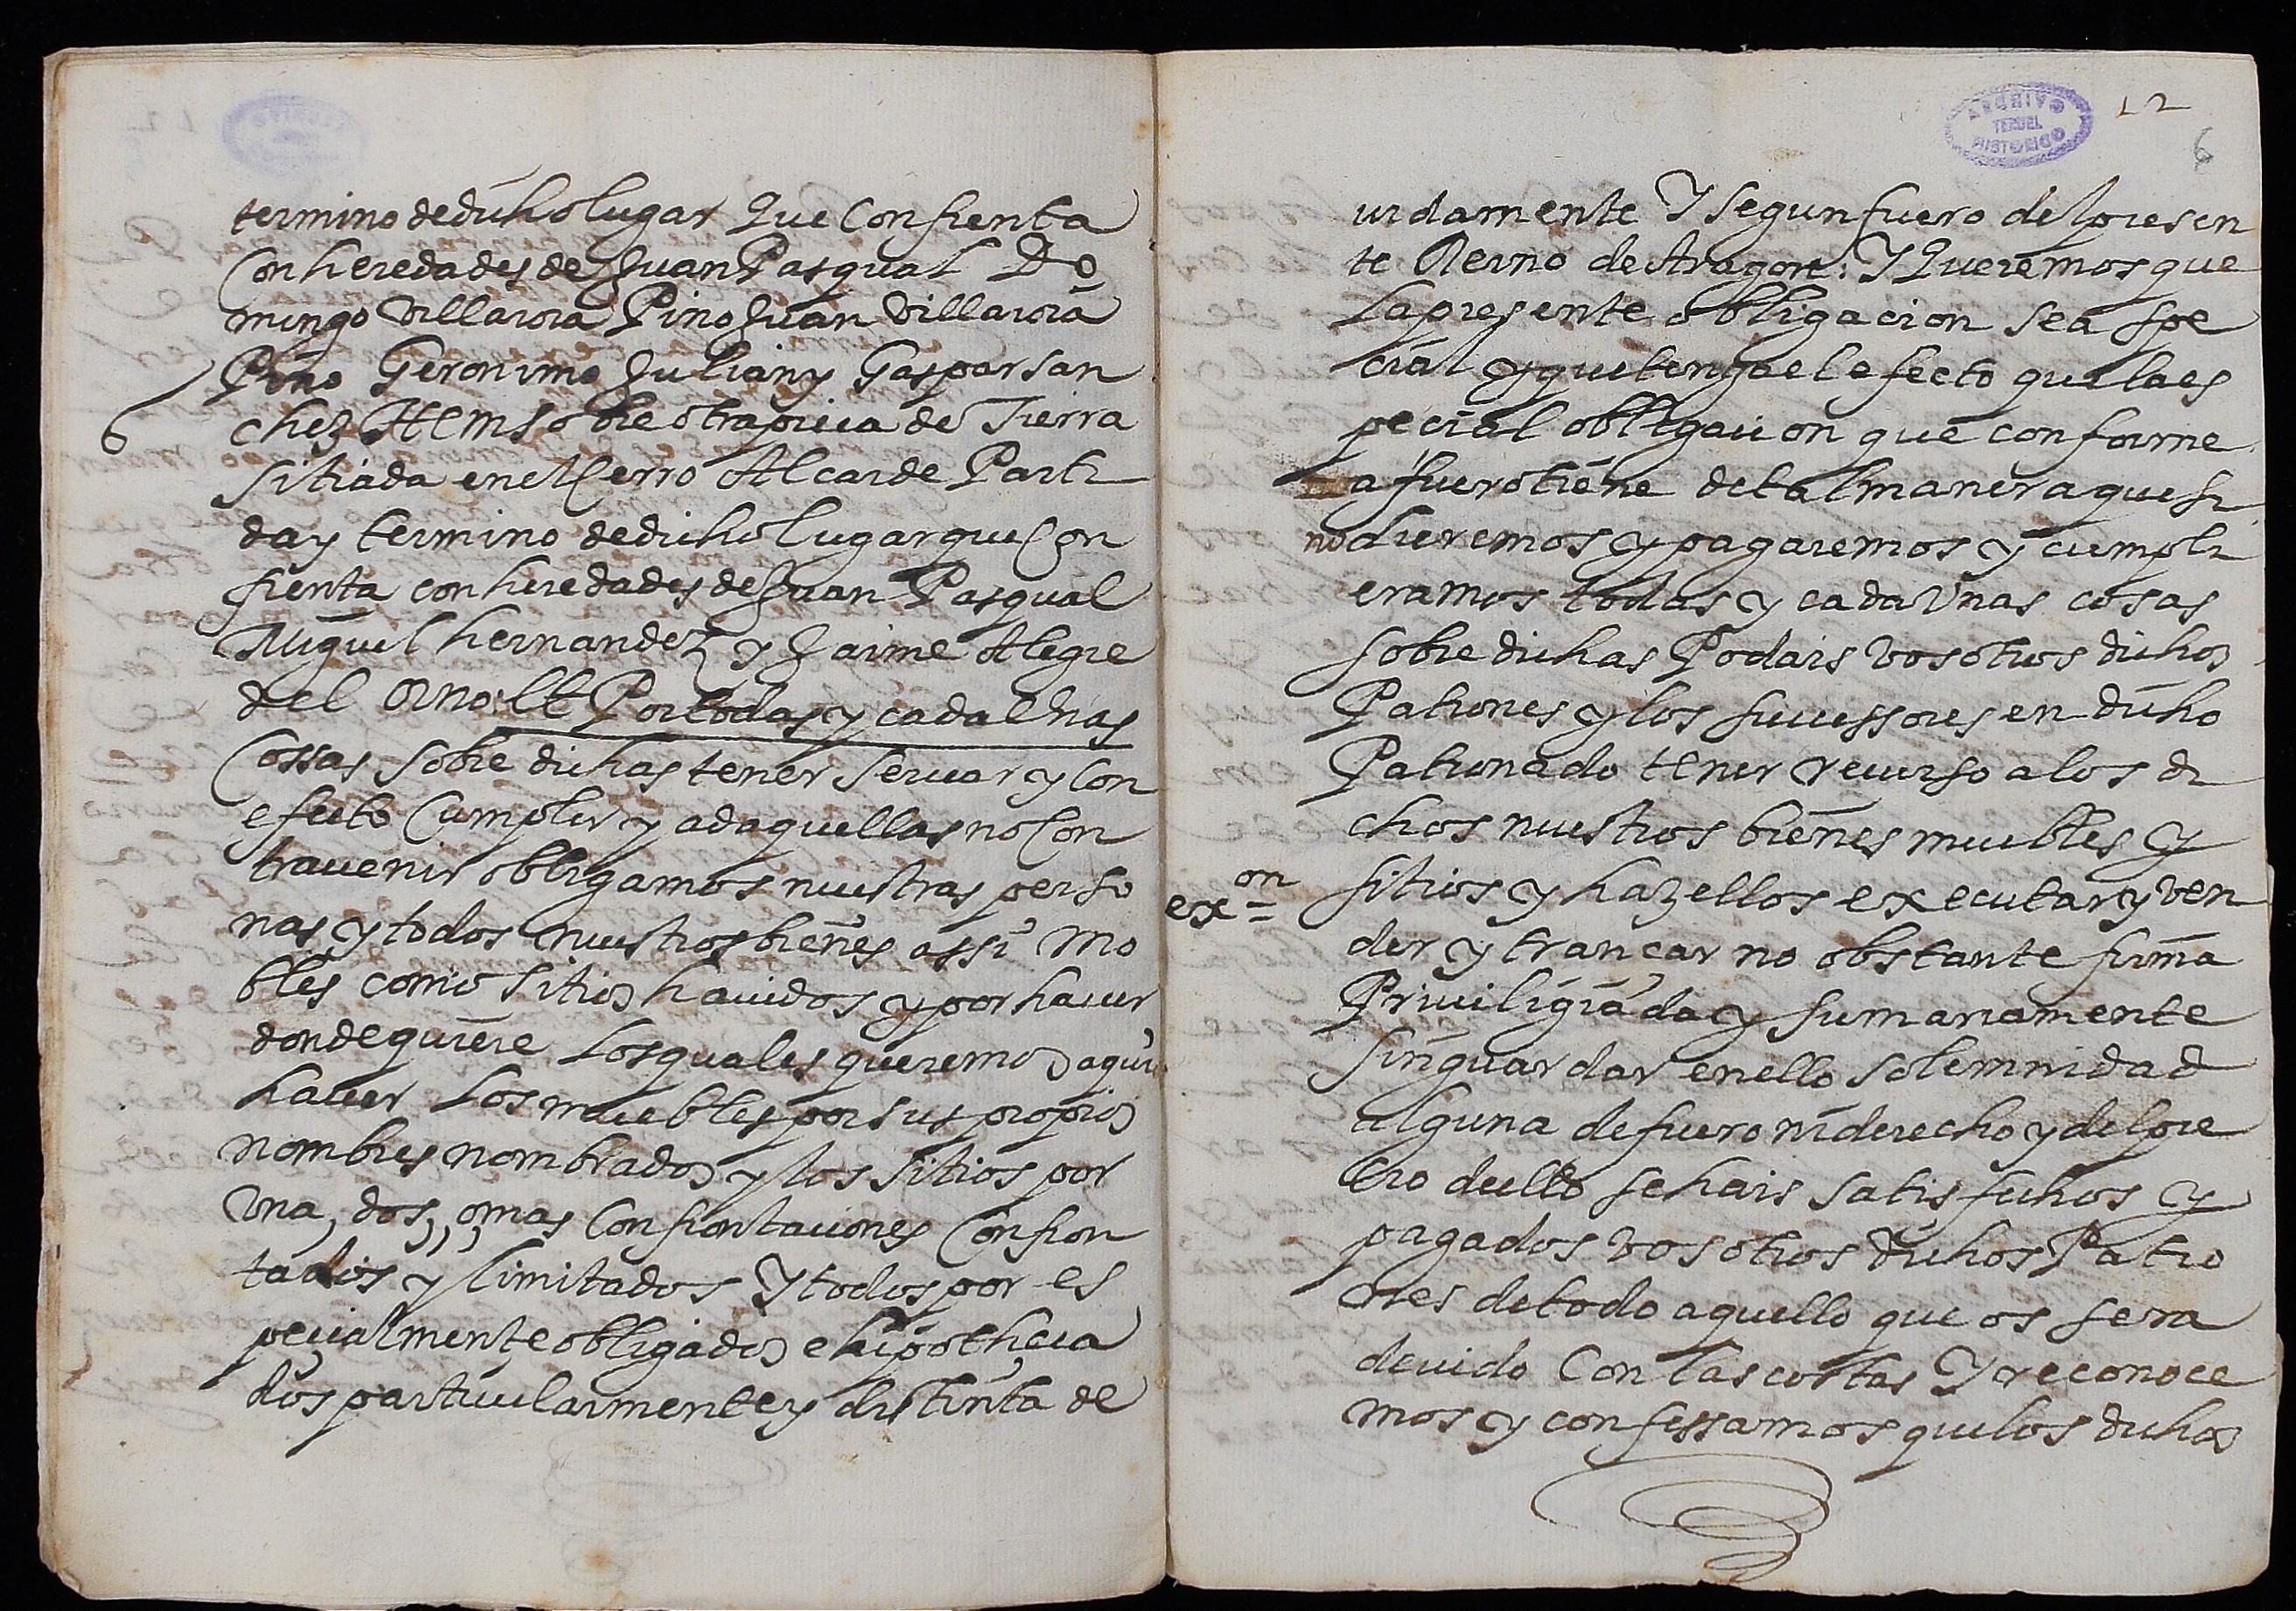 termino de dicho lugar Que Confrenta
Con heredades de Juan Pasqual Do
mingo Villarroia Pino Juan Villarroia
Pino Geronimo Julian y Gaspar san
6
chez Item sobre otra pieca de Tierra
sitiada en el Cerro Alcaide Parti
da y termino de dicho lugar que Con
frenta con heredades de Juan Pasqual
Miguel hernandez y Jaime Alegre
del Por todas y cada Unas
Cossas sobre dichas tener seruar y Con
efecto Cumplir y ad aquellas no Con
trauenir obligamos nuestras perso
nas y todos nuestros bienes assi mo
bles como sitios hauidos y por hauer
donde quiere Los quales queremos aqui
hauer Los muebles por sus propios
nombres nombrados y los sitios por
Vna, dos, o mas Confrontaciones Confron
tados y limitados Y todos por es
pecialmente obligados e hipotheca
dos particularmente y distinta de
ARCHIVO
TERUEL
HISTORICO
12
6
uidamente Y segun fuero del presen
te Reino de Aragon: Y Queremos que
La presente obligacion sea spe
cial y que tenga el efecto que la es
pecial obligacion que conforme
a fuero tiene de tal manera que si
no dieremos y pagaremos y cumpli
eramos todas y cada Vnas cosas
sobre dichas Podais vosotros dichos
Patrones y los sucessores en dicho
Patronado tener recurso a los di
chos nuestros bienes muebles y
exon
sitios y hazellos executar y ven
der y trancar no obstante firma
Priuiligiada y sumariamente
sin guardar en ello solemnidad
alguna de fuero ni derecho y del pre
cio dello sehais satisfechos y
pagados vosotros dichos Patro
nes de todo aquello que os sera
deuido Con las costas Y reconoce
mos y confessamos que los dichos